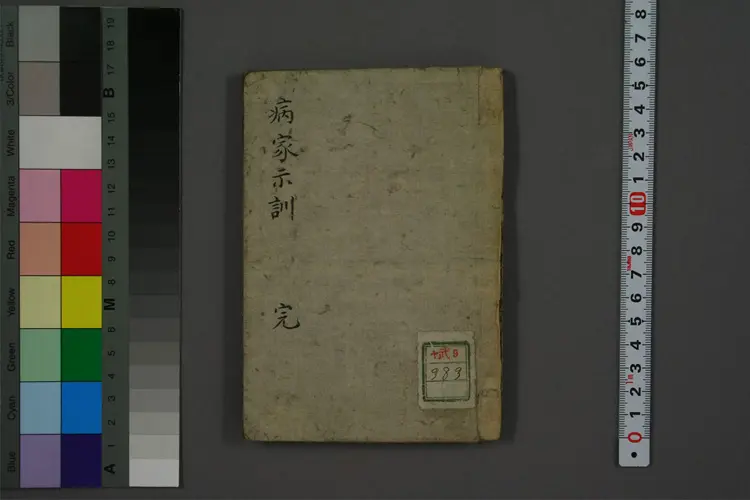 病家示訓
完
983
Black
3/Color
White
Magenta
Red
Yellow
Green
Cyan
Blue
19
18
17
B
15
14
13
12
11
10
9
8
M
6
5
4
3
2
1
A
8
7
6
5
4
3
2
1
10
9
8
7
6
5
4
3
2
1
0